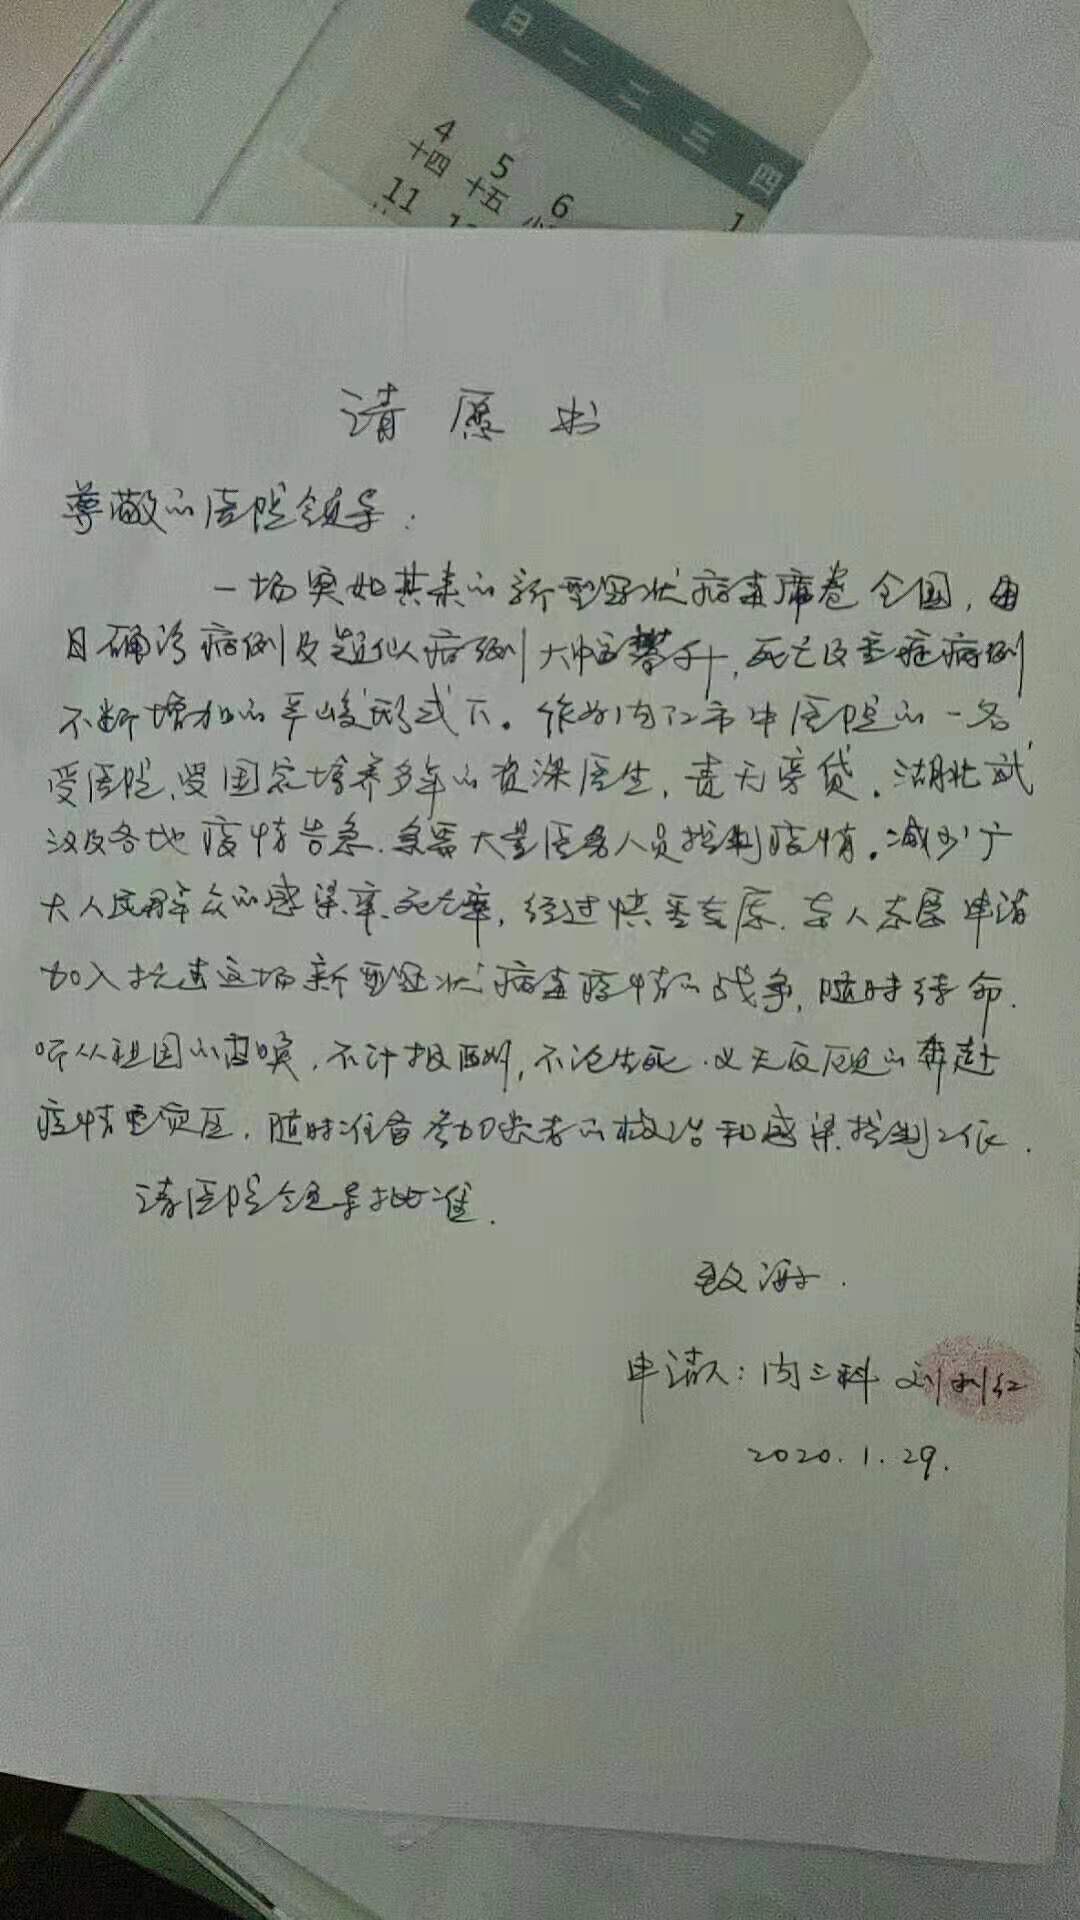 日 一 二 三 四
4 5 6 1
十四 十五
11
请愿书
尊敬的医院领导：
一场突如其来的新型冠状病毒席卷全国，由
目确诊病例及疑似病例大幅攀升，死亡及重症病例
不断增加的严峻形式下。作为内江市中医院的一名
受医院、受国家培养多年的资深医生，责无旁贷。湖北武
汉及各地疫情告急，急需大量医务人员控制疫情。减少广
大人民群众的感染率、死亡率，经过慎重考虑，本人志愿申请
加入抗击这场新型冠状病毒疫情的战争，随时待命，
听从祖国的召唤，不计报酬，不论生死，义无反顾的奔赴
疫情重灾区，随时准备参加患者的救治和感染控制工作．
请医院领导批准．
致谢．
申请人：内三科 刘利红
2020.1.29.